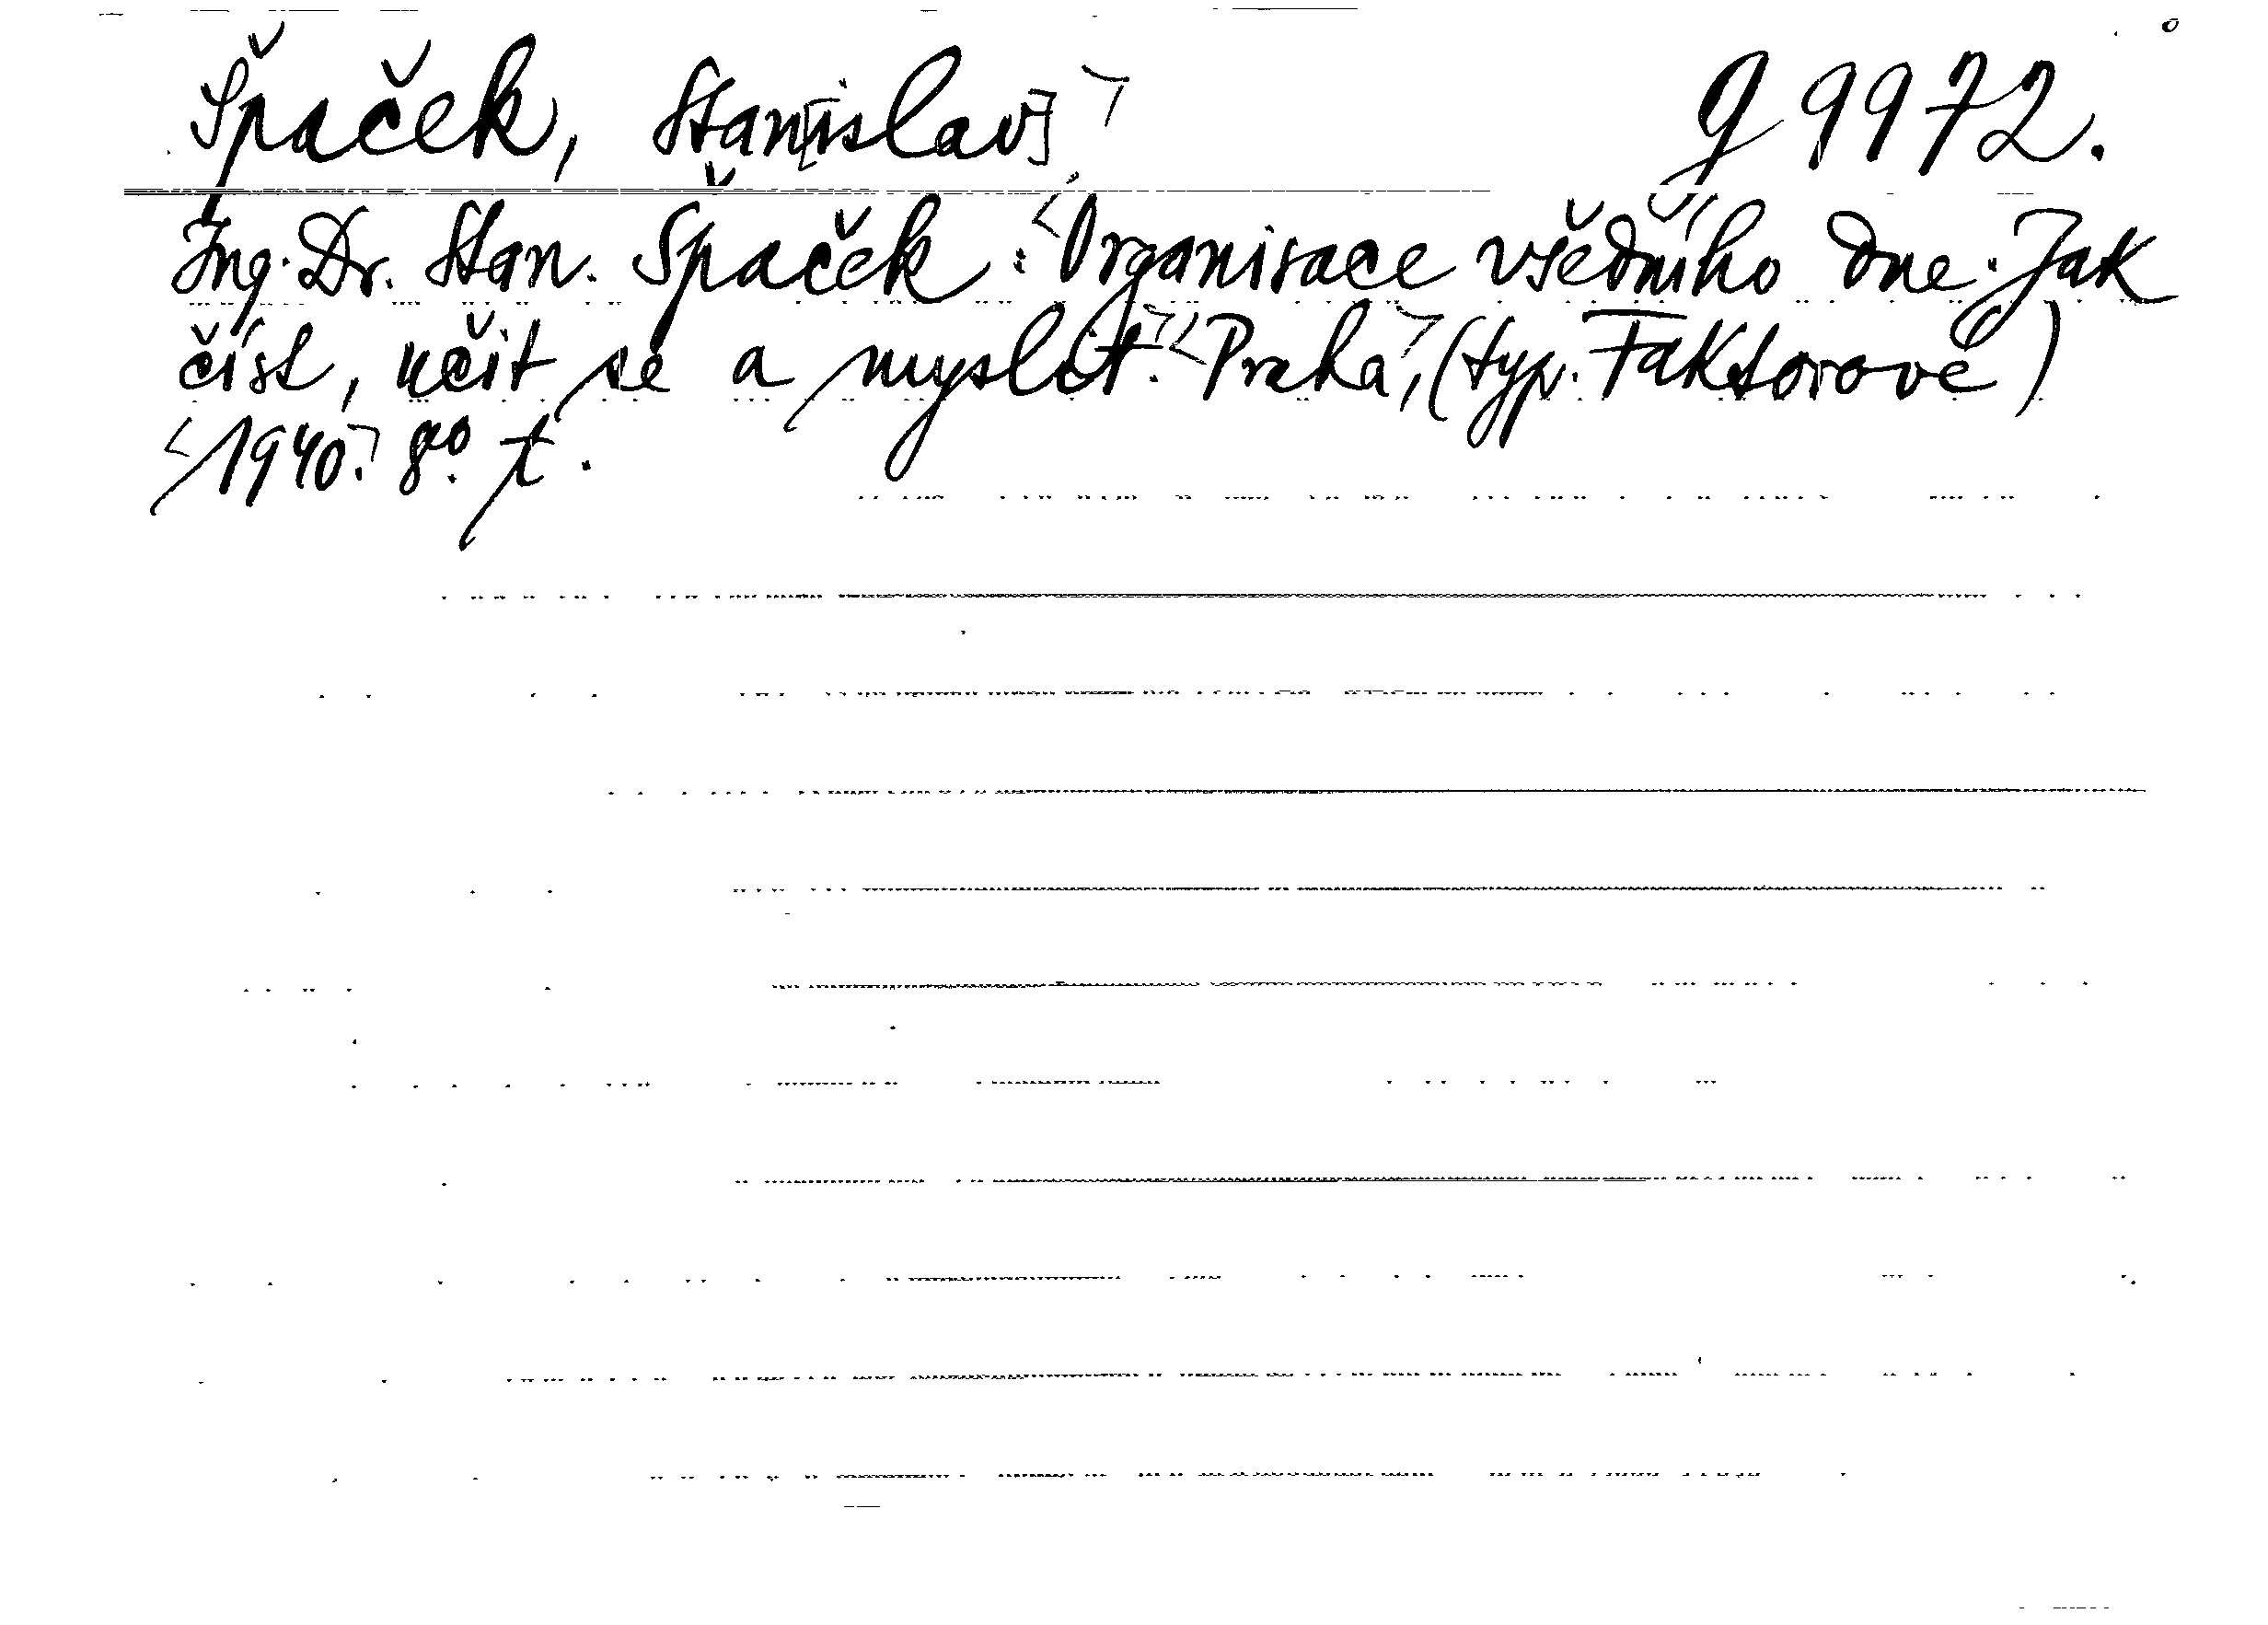 Špaček, Stan[islav] g 9972.
Ing. Dr. Stan. Špaček: Organisace všedního dne. Jak
číst, učit se a myslit. Praha, (typ. Faktorové)
1940. 8º. t.